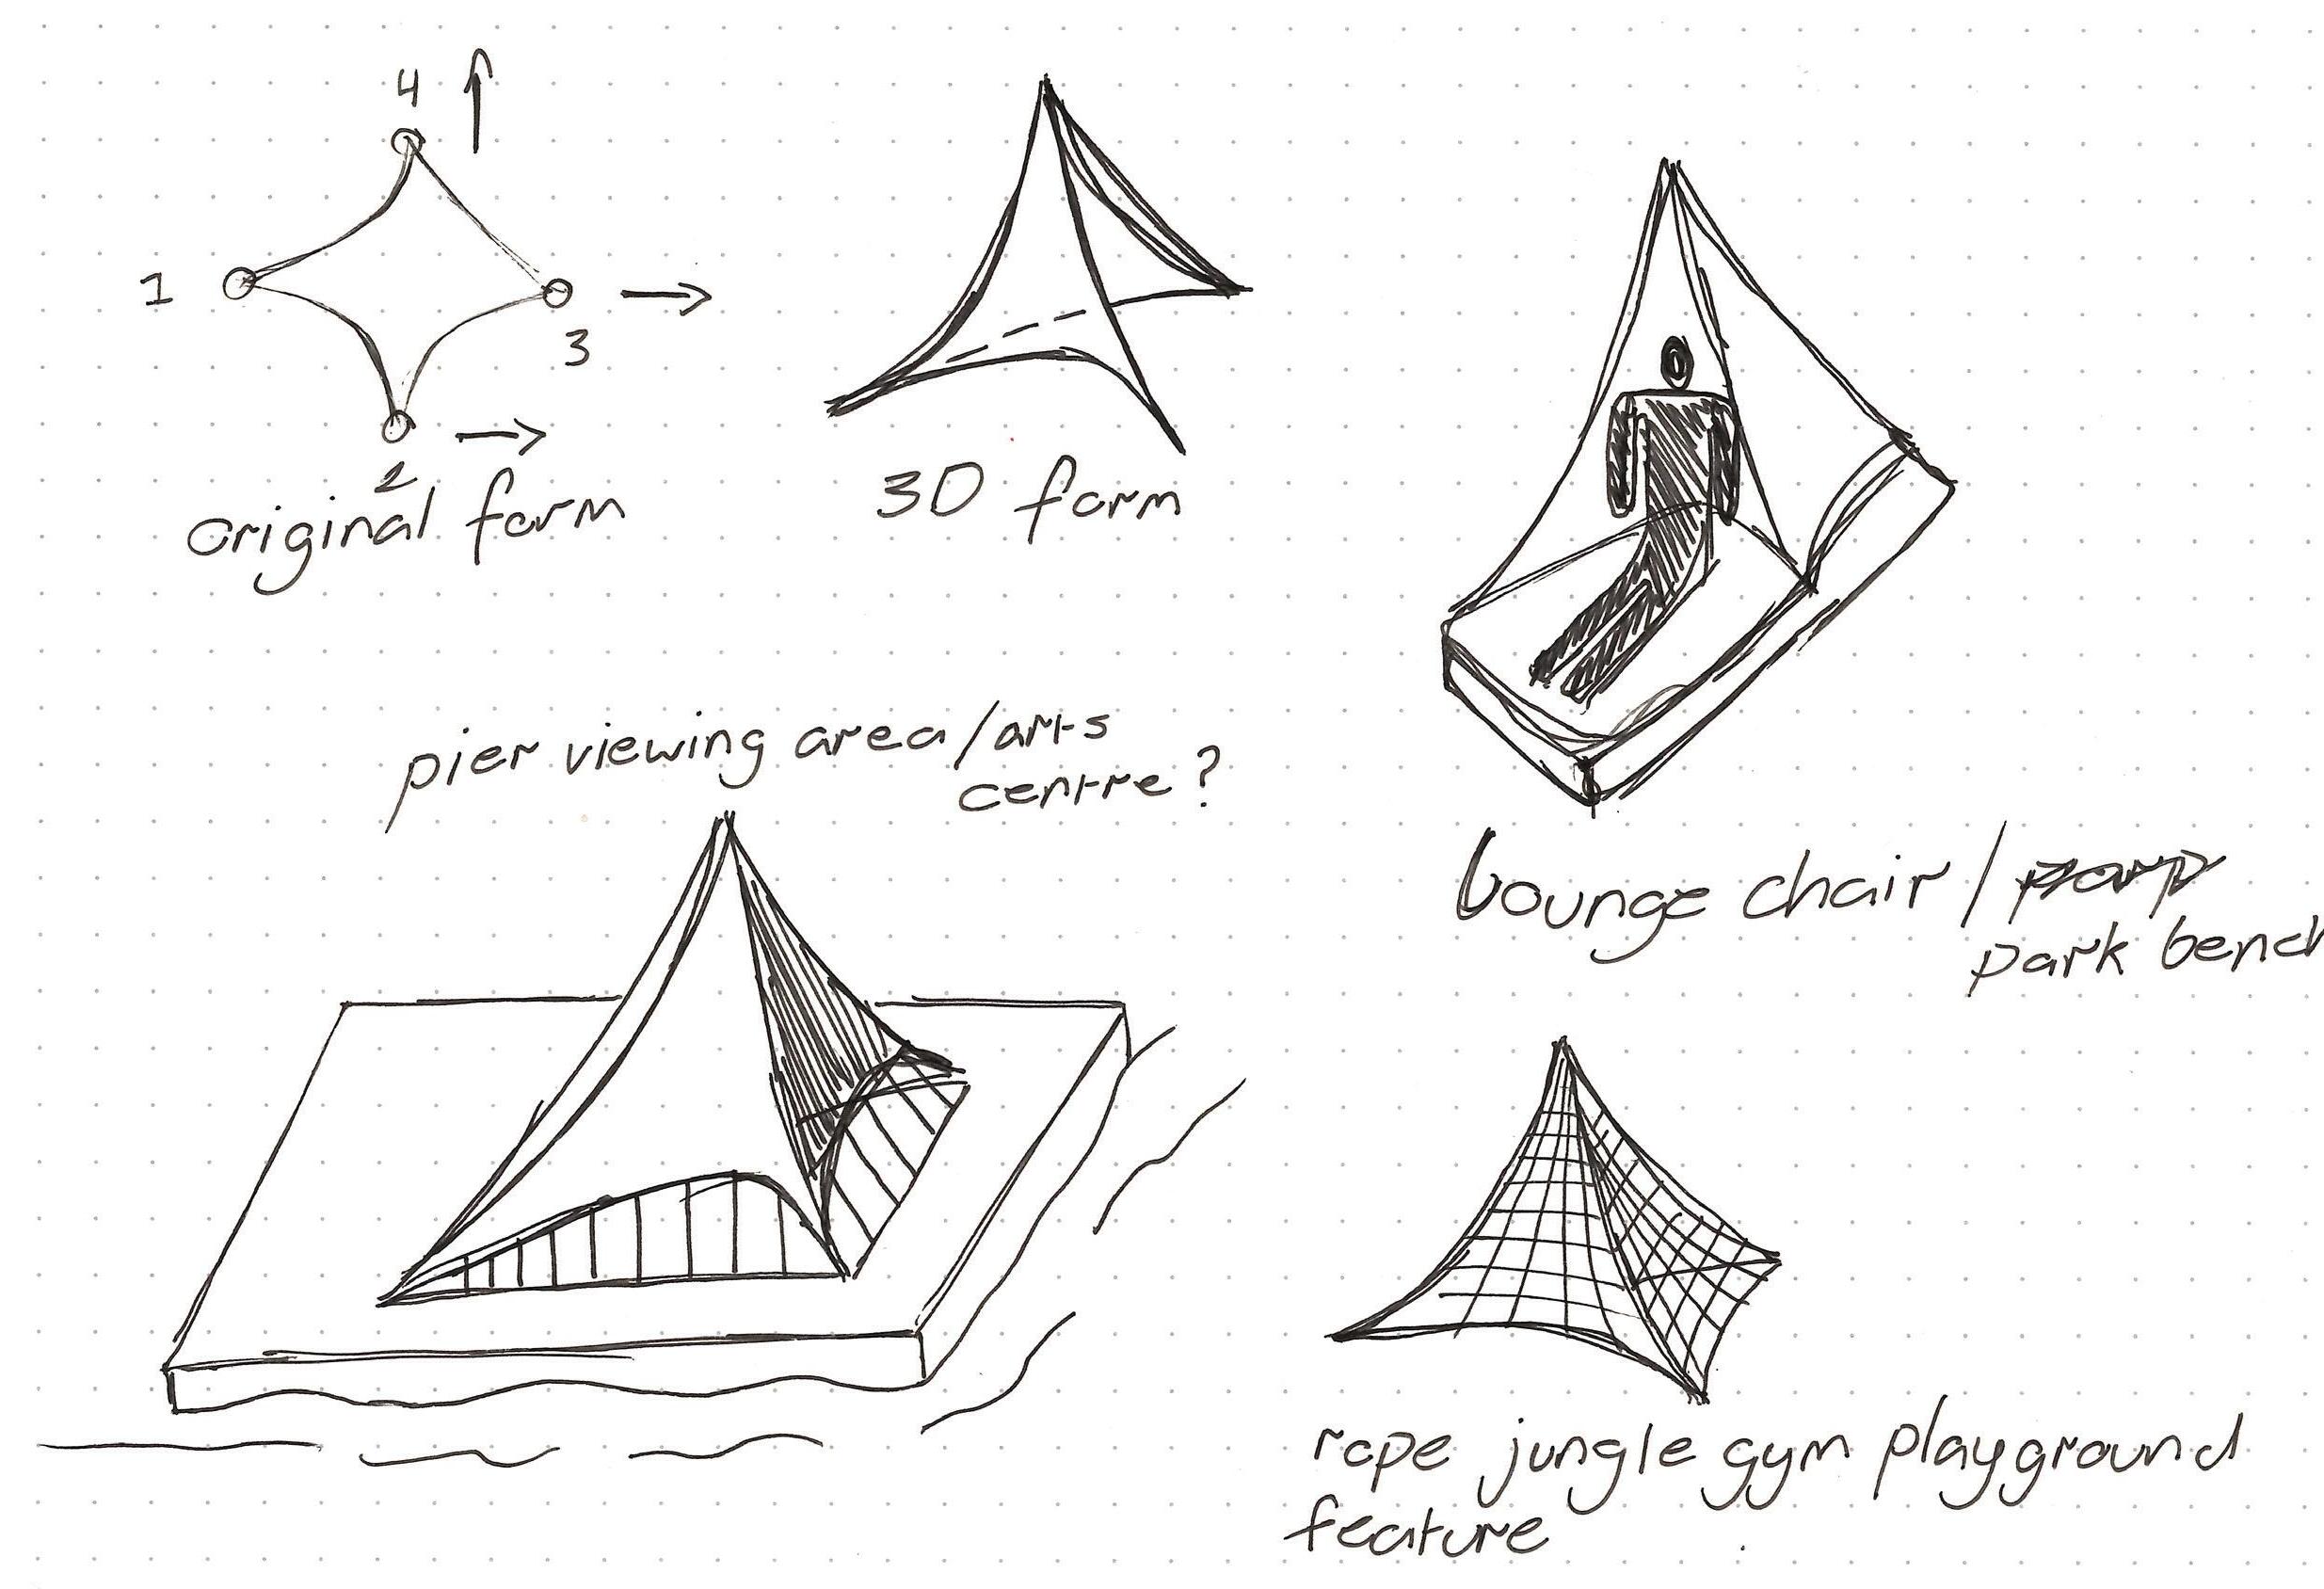 4
1
3
2
original form
3D form
pier viewing area/arts
centre?
lounge chair/
park bench
rope jungle gym playground
feature